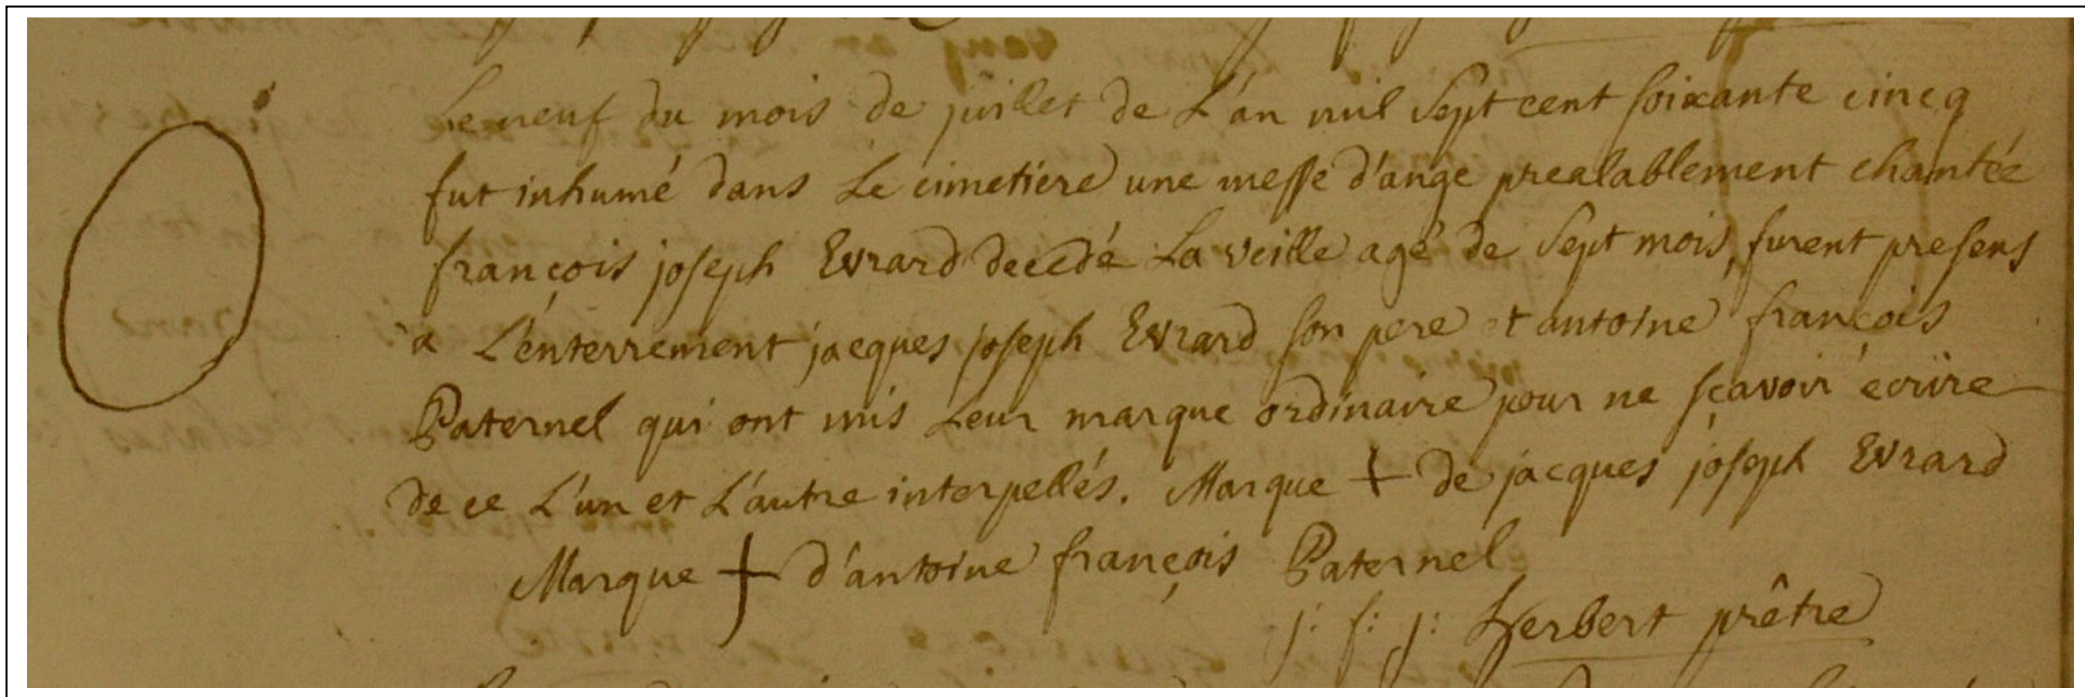 Le neuf du mois de juillet de L'an mil Sept cent soixante cincq
fut inhumé dans Le cimetiére une messe d'ange prealablement chantée
françois joseph Evrard decedé La veille agé de Sept mois, furent presens
a L'énterrement jacques joseph Evrard son pere et antoine françois
Paternel qui ont mis Leur marque ordinaire pour ne sçavoir écrire
de ce L'un et L'autre interpellés. Marque + de jacques joseph Evrard
Marque + d'antoine françois Paternel
j: f: j: Herbert prêtre